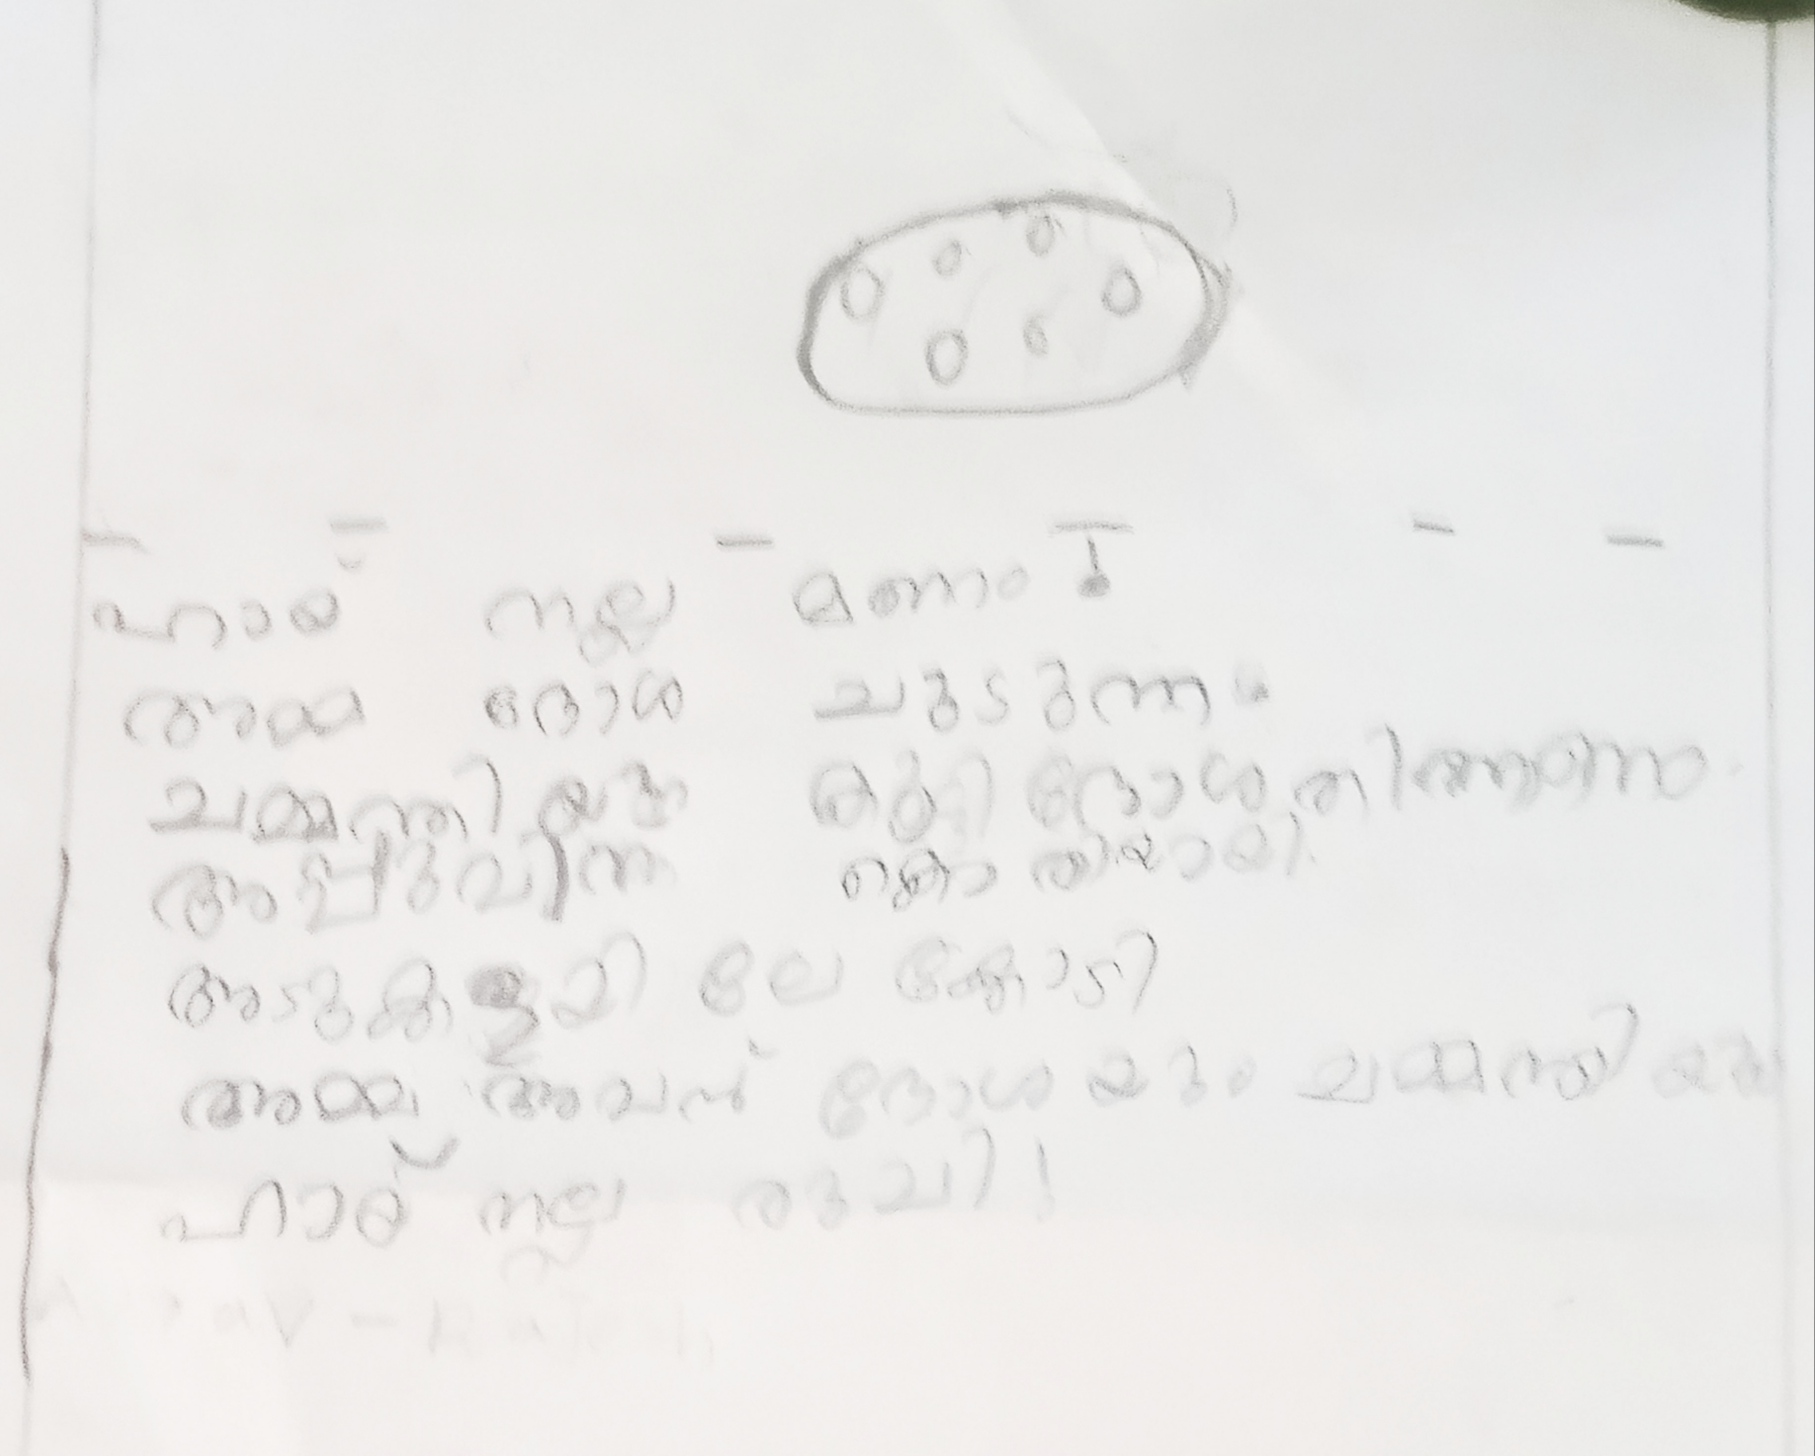 ഹായ് നല്ല മണം!
അമ്മ ദോശ ചുടുന്നു
ചമ്മന്തിയും കൂട്ടി ദോശ തിന്നണം.
അപ്പുവിന് കൊതിയായി.
അടുക്കളയിലേക്കോടി
അമ്മ അവന് ദോശയും ചമ്മന്തിയും
ഹായ് നല്ല രുചി!